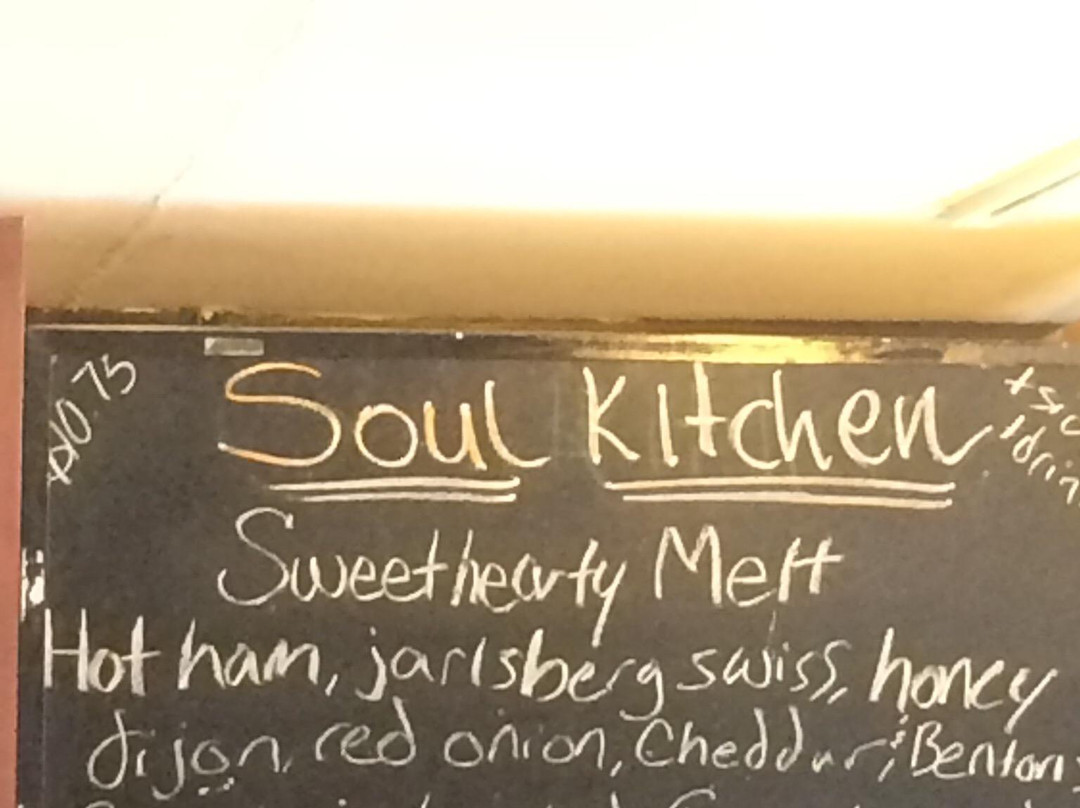 $10.75
Soul Kitchen
Sweethearty Melt
Hot ham, jarlsberg swiss, honey
dijon, red onion, Cheddar, & Benton